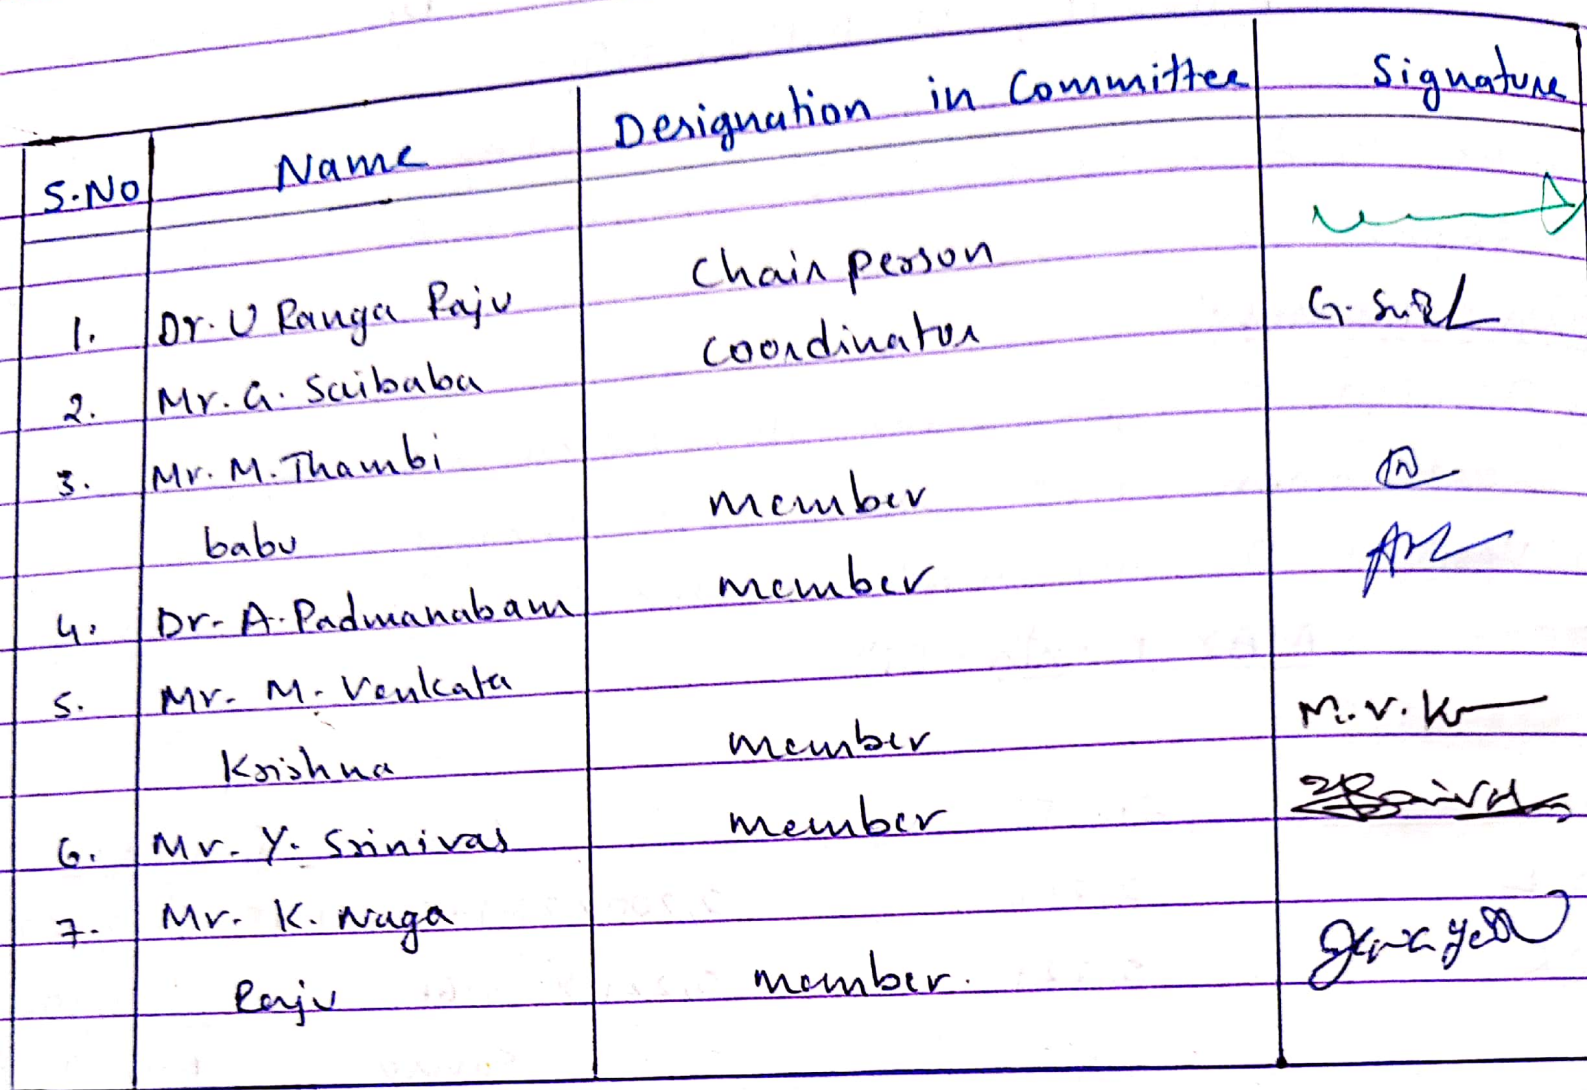 S.No Name Designation in Committee Signature
1. Dr. U Ranga Raju Chair person
2. Mr. G. Saibaba Coordinator G.
3. Mr. M. Thambi
babu member
4. Dr. A. Padmanabam member
5. Mr. M. Venkata
Krishna member M.V.K
6. Mr. Y. Srinivas member
7. Mr. K. Naga
Raju member.